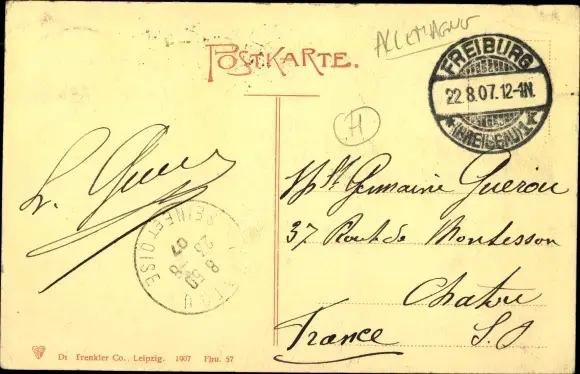 ALLEMAGNE
POSTKARTE.
FREIBURG
22.8.07.12-1N.
* (BREISGAU) 1 *
H
Mlle Germaine Guerou
37 Rout de Montesson
Chatou
France S.O
SEINE ET OISE
8
23 -8
07
Dr Trenkler Co., Leipzig. 1907 Fbu. 57